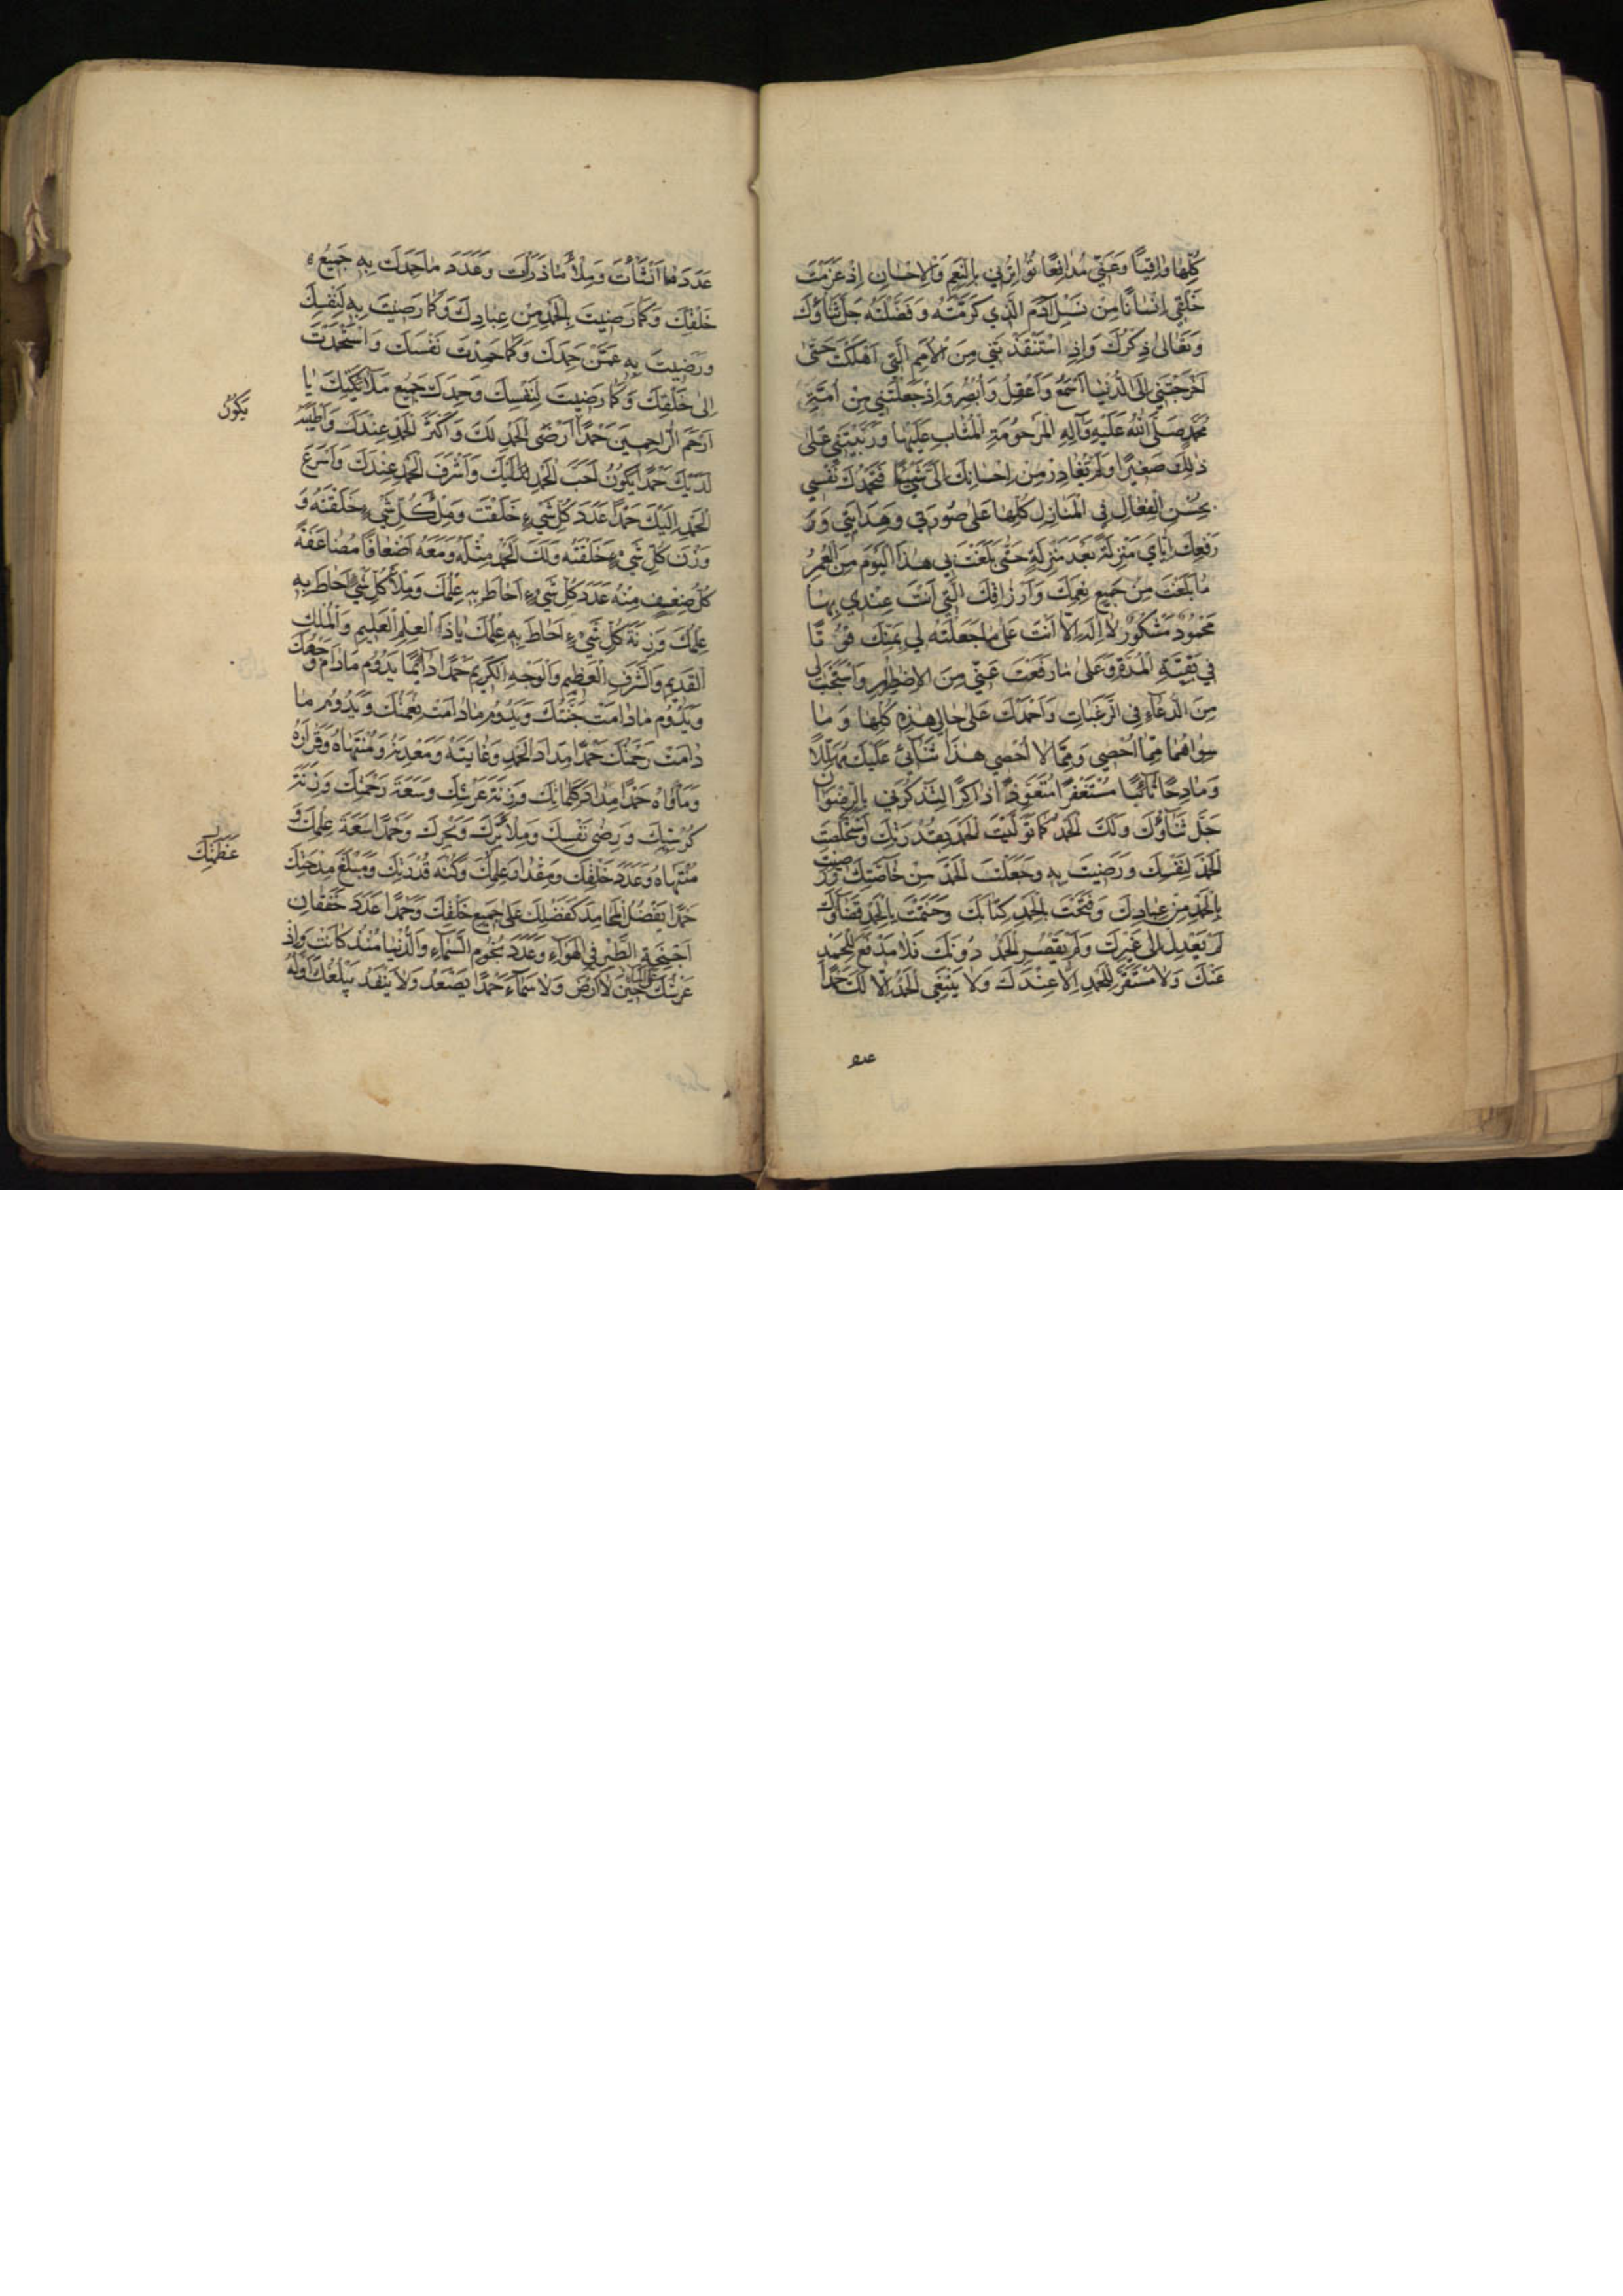 كُلِّهَا وَاقِيًا وَعَنِّي مُدَافِعًا تُوَاتِرُنِي بِالنِّعَمِ وَالْاِحْسَانِ اِذْ عَزَمْتَ
خَلْقِي اِنْسَانًا مِنْ نَسْلِ آدَمَ الَّذِي كَرَّمْتَهُ وَفَضَّلْتَهُ جَلَّ ثَنَاؤُكَ
وَتَعَالَى ذِكْرُكَ وَاِذِ اسْتَنْقَذْتَنِي مِنَ الْاُمَمِ الَّتِي اَهْلَكْتَ حَتَّى
اَخْرَجْتَنِي اِلَى الدُّنْيَا اَسْمَعُ وَاَعْقِلُ وَاُبْصِرُ وَاِذْ جَعَلْتَنِي مِنْ اُمَّةِ
مُحَمَّدٍ صَلَّى اللّٰهُ عَلَيْهِ وَآلِهِ الْمَرْحُومَةِ الْمُثَابِ عَلَيْهَا وَرَبَّيْتَنِي عَلَى
ذٰلِكَ صَغِيرًا وَلَمْ تُغَادِرْ مِنْ اِحْسَانِكَ اِلَيَّ شَيْئًا فَتَحْمَدُكَ نَفْسِي
بِحُسْنِ الْفِعَالِ فِي الْمَنَازِلِ كُلِّهَا عَلَى صُورَتِي وَهِدَايَتِي وَ
رَفْعِكَ اِيَّايَ مَنْزِلَةً بَعْدَ مَنْزِلَةٍ حَتَّى بَلَغْتَ بِي هٰذَا الْيَوْمَ مِنَ الْعُمُرِ
مَا بَلَغْتَ مِنْ جَمِيعِ نِعَمِكَ وَاَرْزَاقِكَ الَّتِي اَنْتَ عِنْدِي بِهَا
مَحْمُودٌ مَشْكُورٌ لَا اِلٰهَ اِلَّا اَنْتَ عَلَى مَا جَعَلْتَهُ لِي بِمَنِّكَ قُوتًا
فِي بَقِيَّةِ الْمُدَّةِ وَعَلَى مَا رَفَعْتَ عَنِّي مِنَ الْاِضْطِرَارِ وَاسْتَجَبْتَ لِي
مِنَ الدُّعَاءِ فِي الرَّغَبَاتِ وَاَحْمَدُكَ عَلَى حَالِي هٰذِهِ كُلِّهَا وَمَا
سِوَاهُمَا مِمَّا اُحْصِي وَمِمَّا لَا اُحْصِي هٰذَا ثَنَائِي عَلَيْكَ مُهَلِّلًا
وَمَادِحًا تَائِبًا مُسْتَغْفِرًا مُتَعَوِّذًا ذَاكِرًا لِتَذْكُرَنِي بِالرِّضْوَانِ
جَلَّ ثَنَاؤُكَ وَلَكَ الْحَمْدُ كَمَا تَوَلَّيْتَ الْحَمْدَ بِقُدْرَتِكَ وَاسْتَخْلَصْتَ
الْحَمْدَ لِنَفْسِكَ وَرَضِيتَ بِهِ وَجَعَلْتَ الْحَمْدَ مِنْ خَاصَّتِكَ وَرَضِيتَ
بِالْحَمْدِ مِنْ عِبَادِكَ وَفَتَحْتَ بِالْحَمْدِ كِتَابَكَ وَخَتَمْتَ بِالْحَمْدِ قَضَاؤَكَ
لَمْ يَعْدِلْ اِلَى غَيْرِكَ وَلَمْ يَقْصُرِ الْحَمْدُ دُونَكَ فَلَا مَدْفَعَ لِلْحَمْدِ
عَنْكَ وَلَا مُسْتَقَرَّ لِلْحَمْدِ اِلَّا عِنْدَكَ وَلَا يَنْبَغِي الْحَمْدُ اِلَّا لَكَ حَمْدًا
عدد
عَدَدَ مَا اَنْشَأْتَ وَمِلْأَ مَا ذَرَأْتَ وَعَدَدَ مَا حَمِدَكَ بِهِ جَمِيعُ
خَلْقِكَ وَكَمَا رَضِيتَ بِالْحَمْدِ مِنْ عِبَادِكَ وَكَمَا رَضِيتَ بِهِ لِنَفْسِكَ
وَرَضِيتَ بِهِ عَمَّنْ حَمِدَكَ وَكَمَا حَمِدْتَ نَفْسَكَ وَاسْتَحْمَدْتَ
اِلَى خَلْقِكَ وَكَمَا رَضِيتَ لِنَفْسِكَ وَحَمِدَكَ جَمِيعُ مَلَائِكَتِكَ يَا
اَرْحَمَ الرَّاحِمِينَ حَمْدًا اَرْضَى الْحَمْدِ لَكَ وَاَكْثَرَ الْحَمْدِ عِنْدَكَ وَاَطْيَبَ
يَكُونُ
لَدَيْكَ حَمْدًا يَكُونُ اَحَبَّ الْحَمْدِ اِلَيْكَ وَاَشْرَفَ الْحَمْدِ عِنْدَكَ وَاَسْرَعَ
الْحَمْدِ اِلَيْكَ حَمْدًا عَدَدَ كُلِّ شَيْءٍ خَلَقْتَ وَمِلْأَ كُلِّ شَيْءٍ خَلَقْتَهُ وَ
وَزْنَ كُلِّ شَيْءٍ خَلَقْتَهُ وَلَكَ الْحَمْدُ مِثْلَهُ وَمَعَهُ اَضْعَافًا مُضَاعَفَةً
كُلُّ ضِعْفٍ مِنْهُ عَدَدَ كُلِّ شَيْءٍ اَحَاطَ بِهِ عِلْمُكَ وَمِلْأَ كُلِّ شَيْءٍ اَحَاطَ بِهِ
عِلْمُكَ وَزِنَةَ كُلِّ شَيْءٍ اَحَاطَ بِهِ عِلْمُكَ يَا ذَا الْعِلْمِ الْعَلِيمِ وَالْمُلْكِ
الْقَدِيمِ وَالشَّرَفِ الْعَظِيمِ وَالْوَجْهِ الْكَرِيمِ حَمْدًا دَائِمًا يَدُومُ مَا دَامَ وَجْهُكَ
وَيَدُومُ مَا دَامَتْ جَنَّتُكَ وَيَدُومُ مَا دَامَتْ نِعْمَتُكَ وَيَدُومُ مَا
دَامَتْ رَحْمَتُكَ حَمْدًا مِدَادَ الْحَمْدِ وَغَايَتَهُ وَمَعْدِنَهُ وَمُنْتَهَاهُ وَقَرَارَهُ
وَمَأْوَاهُ حَمْدًا مِدَادَ كَلِمَاتِكَ وَزِنَةَ عَرْشِكَ وَسَعَةَ رَحْمَتِكَ وَزِنَةَ
كُرْسِيِّكَ وَرِضَى نَفْسِكَ وَمِلْأَ بَرِّكَ وَبَحْرِكَ وَحَمْدًا سَعَةَ عِلْمِكَ وَ
مُنْتَهَاهُ وَعَدَدَ خَلْقِكَ وَمِقْدَارَ عِلْمِكَ وَكُنْهَ قُدْرَتِكَ وَمَبْلَغَ مِدْحَتِكَ
عَظَمَتِكَ
حَمْدًا يَفْضُلُ الْمَحَامِدَ كَفَضْلِكَ عَلَى جَمِيعِ خَلْقِكَ وَحَمْدًا عَدَدَ خَفَقَانِ
اَجْنِحَةِ الطَّيْرِ فِي الْهَوَاءِ وَعَدَدَ نُجُومِ السَّمَاءِ وَالدُّنْيَا مُنْذُ كَانَتْ وَاِذْ
عَرْشُكَ عَلَى الْمَاءِ حِينَ لَا اَرْضَ وَلَا سَمَاءَ حَمْدًا يَصْعَدُ وَلَا يَنْفَدُ يَبْلُغُكَ اَوَّلُهُ